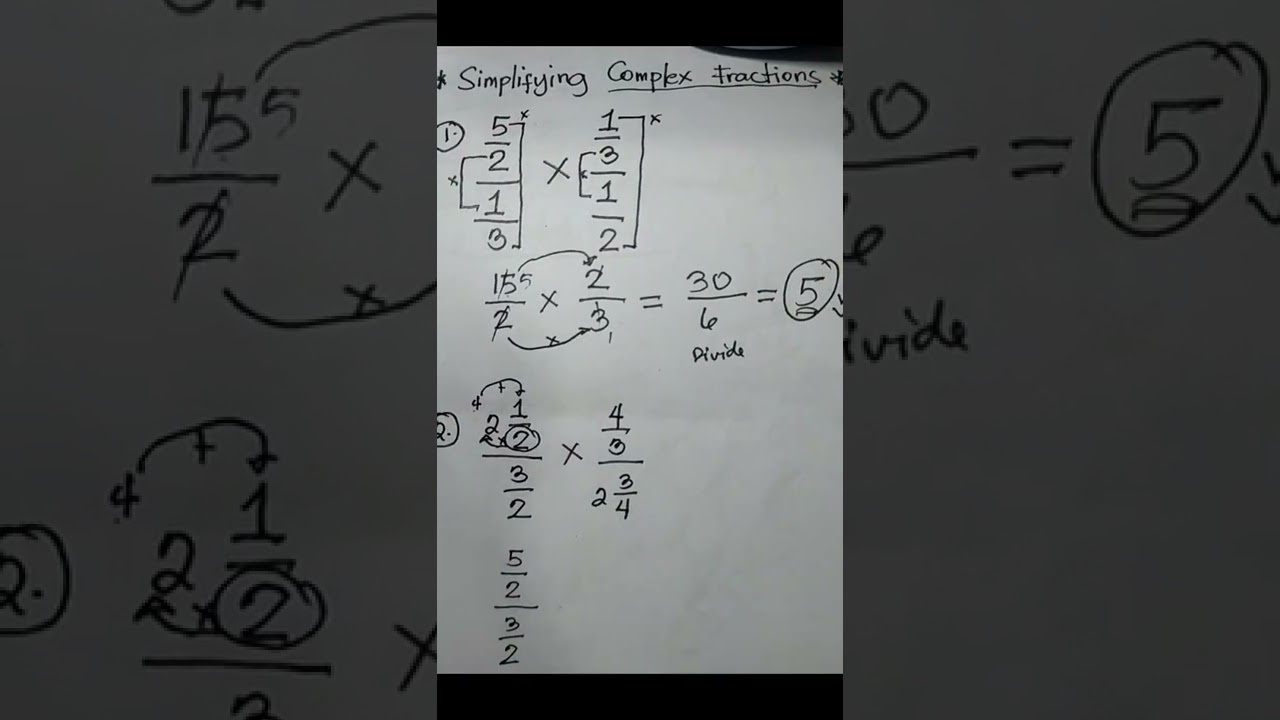 * Simplifying Complex Fractions *
1. 5/2 / 1/3 × 1/3 / 1/2
15/2 5 × 2/3 1 = 30/6 = 5
Divide
4 +
2. 2 1/2 / 3/2 × 4/3 / 2 3/4
5/2 / 3/2